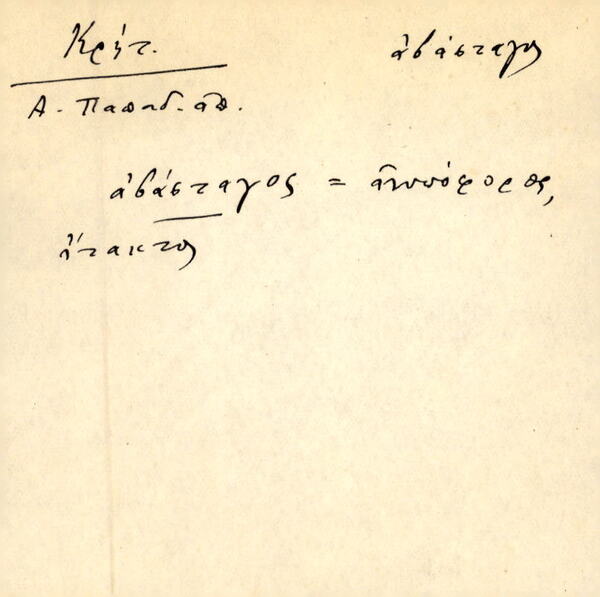 Κρήτ. ἀβάσταγος
Α. Παπαδ. απ.
ἀβάσταγος = ἀνυπόφορος,
ἄτακτος